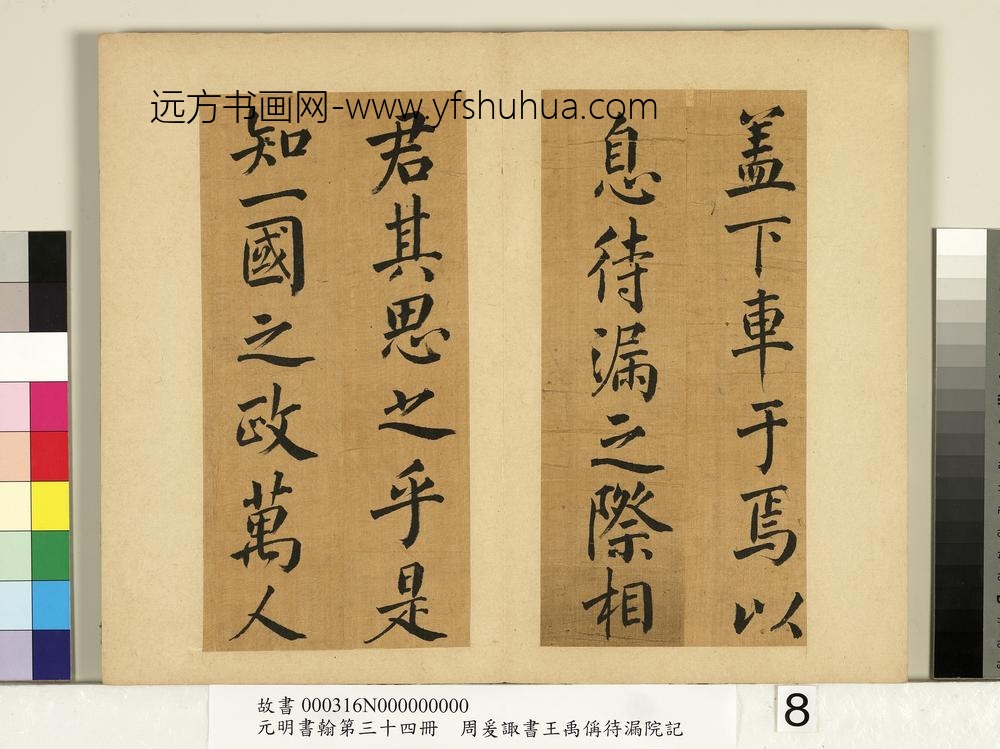 远方书画网-www.yfshuhua.com
盖下車于焉以
息待漏之際相
君其思之乎是
知一國之政萬人
故書 000316N000000000
元明書翰第三十四冊 周爰諏書王禹偁待漏院記
8